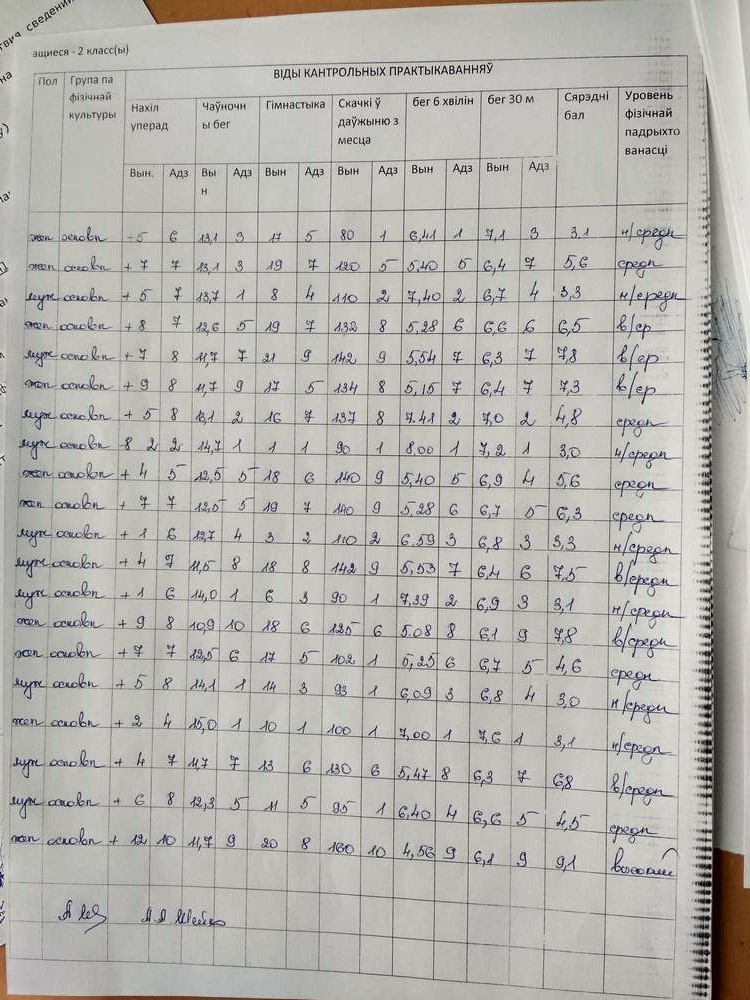 ствия сведений
ащиеся - 2 класс(ы)
ВІДЫ КАНТРОЛЬНЫХ ПРАКТЫКАВАННЯЎ
Пол Група па фізічнай культуры Нахіл уперад Чаўночны бег Гімнастыка Скачкі ў даўжыню з месца бег 6 хвілін бег 30 м Сярэдні бал Уровень фізічнай падрыхтованасці
Вын. Адз Вын Адз Вын Адз Вын Адз Вын Адз Вын Адз
жен основн -5 6 13,1 3 17 5 80 1 6,41 1 7,1 3 3,1 н/средн
жен основн +7 7 13,1 3 19 7 120 5 5,40 5 6,4 7 5,6 средн
муж основн +5 7 13,7 1 8 4 110 2 7,40 2 6,7 4 3,3 н/средн
жен основн +8 7 12,6 5 19 7 132 8 5,28 6 6,6 6 6,5 в/ср
муж основн +7 8 11,7 7 21 9 142 9 5,54 7 6,3 7 7,8 в/ср
жен основн +9 8 11,7 9 17 5 134 8 5,15 7 6,4 7 7,3 в/ср
муж основн +5 8 13,1 2 16 7 137 8 7.41 2 7,0 2 4,8 средн
муж основн -8 2 2 14,7 1 1 1 90 1 8,00 1 7,2 1 3,0 н/средн
жен основн +4 5 12,5 5 18 6 140 9 5,40 5 6,9 4 5,6 средн
жен основн +7 7 12,5 5 19 7 140 9 5,28 6 6,7 5 6,3 средн
муж основн +1 6 12,7 4 3 2 110 2 6.59 3 6,8 3 3,3 н/средн
муж основн +4 7 11,5 8 18 8 142 9 5,53 7 6,4 6 7,5 в/средн
муж основн +1 6 14,0 1 6 3 90 1 7,39 2 6,9 3 3,1 н/средн
жен основн +9 8 10,9 10 18 6 125 6 5.08 8 6,1 9 7,8 в/средн
жен основн +7 7 12,5 6 17 5 102 1 5,25 6 6,7 5 4,6 средн
муж основн +5 8 14,1 1 14 3 93 1 6,09 3 6,8 4 3,0 н/средн
жен основн +2 4 15,0 1 10 1 100 1 7,00 1 7,6 1 3,1 н/средн
муж основн +4 7 11,7 7 13 6 130 6 5,47 8 6,3 7 6,8 в/средн
муж основн +6 8 12,3 5 11 5 95 1 6,40 4 6,6 5 4,5 средн
жен основн +12 10 11,7 9 20 8 160 10 4,56 9 6,1 9 9,1 высокий